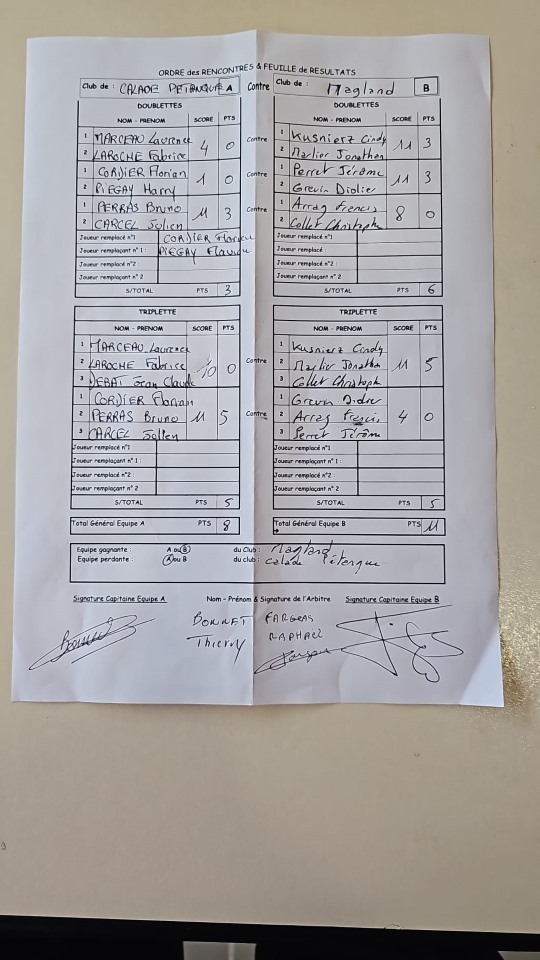 ORDRE des RENCONTRES & FEUILLE de RESULTATS
Club de : CALADE PETANQUE A Contre Club de : Magland B
DOUBLETTES DOUBLETTES
NOM - PRENOM SCORE PTS NOM - PRENOM SCORE PTS
1 MARCEAU Laurence 4 0 Contre 1 Kusnierz Cindy 11 3
2 LAROCHE Fabrice 2 Marlier Jonathan
1 CORDIER Florian 1 0 Contre 1 Perret Jérôme 11 3
2 PIEGAY Harry 2 Grevin Didier
1 PERRAS Bruno 11 3 Contre 1 Arrag Francis 8 0
2 CARCEL Julien 2 Collet Christophe
Joueur remplacé n°1 CORDIER Florian Joueur remplacé n°1
Joueur remplaçant n°1 : PIEGAY Joueur remplacé :
Joueur remplacé n°2 : Joueur remplacé n°2 :
Joueur remplaçant n° 2 Joueur remplaçant n° 2
S/TOTAL PTS 3 S/TOTAL PTS 6
TRIPLETTE TRIPLETTE
NOM - PRENOM SCORE PTS NOM - PRENOM SCORE PTS
1 MARCEAU Laurence 1 Kusnierz Cindy
2 LAROCHE Fabrice 10 0 Contre 2 Marlier Jonathan 11 5
3 DEBAT Jean Claude 3 Collet Christoph
1 CORDIER Florian 1 Grevin Didier
2 PERRAS Bruno 11 5 Contre 2 Arrag Francis 4 0
3 CARCEL Julien 3 Perret Jérôme
Joueur remplacé n°1 Joueur remplacé n°1
Joueur remplaçant n° 1 : Joueur remplaçant n° 1 :
Joueur remplacé n°2 : Joueur remplacé n°2 :
Joueur remplaçant n° 2 Joueur remplaçant n° 2
S/TOTAL PTS 5 S/TOTAL PTS 5
Total Général Equipe A PTS 8 Total Général Equipe B PTS 11
Equipe gagnante : A ou B du Club : Magland
Equipe perdante : A ou B du club : Calade Pétanque
Signature Capitaine Equipe A Nom - Prénom & Signature de l'Arbitre Signature Capitaine Equipe B
BONNET FARGEAS
Thierry RAPHAEL